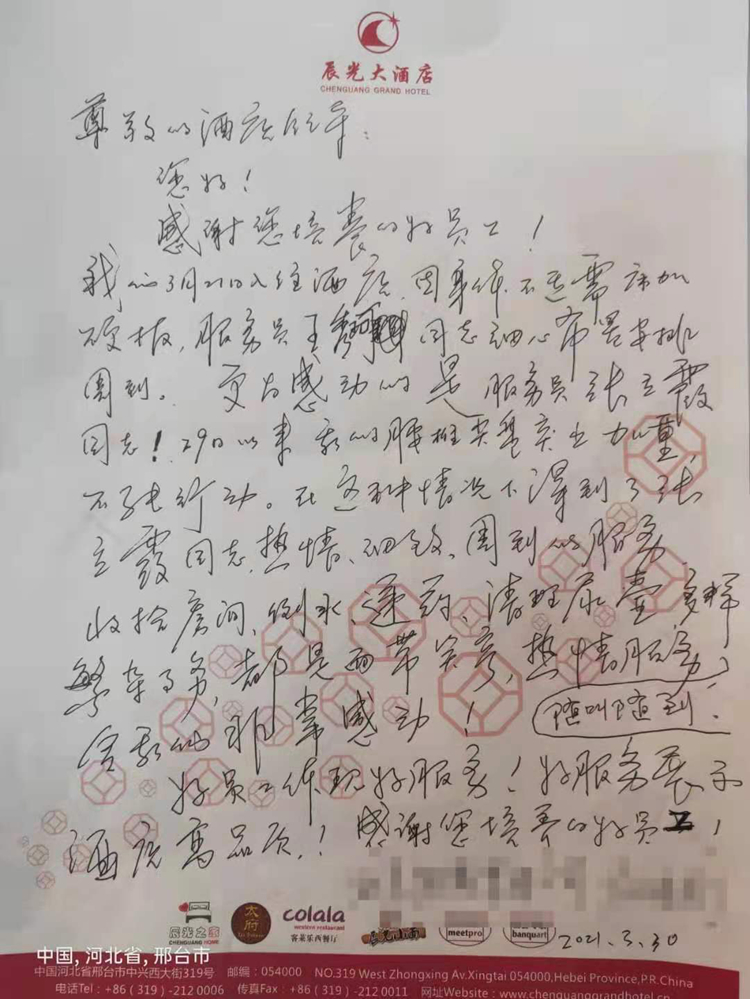 辰光大酒店
CHENGUANG GRAND HOTEL
尊敬的酒店领导：
您好！
感谢您培养的好员工！
我们3月21日入住酒店，因身体不适需床加
硬板，服务员王 同志细心布置安排
周到。更为感动的是服务员张立霞
同志！29日以来我的腰椎间盘突出加重，
不能行动。在这种情况下得到了张
立霞同志热情、细致、周到的服务。
收拾房间，倒水、递药、清理尿壶多样
繁杂事务，都是面带笑容，热情服务，
随叫随到。
令我们非常感动！
好员工体现好服务！好服务展示
酒店高品质！感谢您培养的好员工！
2021.3.30
辰光之家
CHENGUANG HOME
太府
colala
western restaurant
客莱乐西餐厅
meetpro
banquart
中国, 河北省, 邢台市
中国河北省邢台市中兴西大街319号 邮编：054000 NO.319 West Zhongxing Av.Xingtai 054000,Hebei Province,P.R.China
电话Tel：+86（319）-212 0006 传真Fax：+86（319）-212 0011 网址Website：www.chenguanggrandhotel.cn